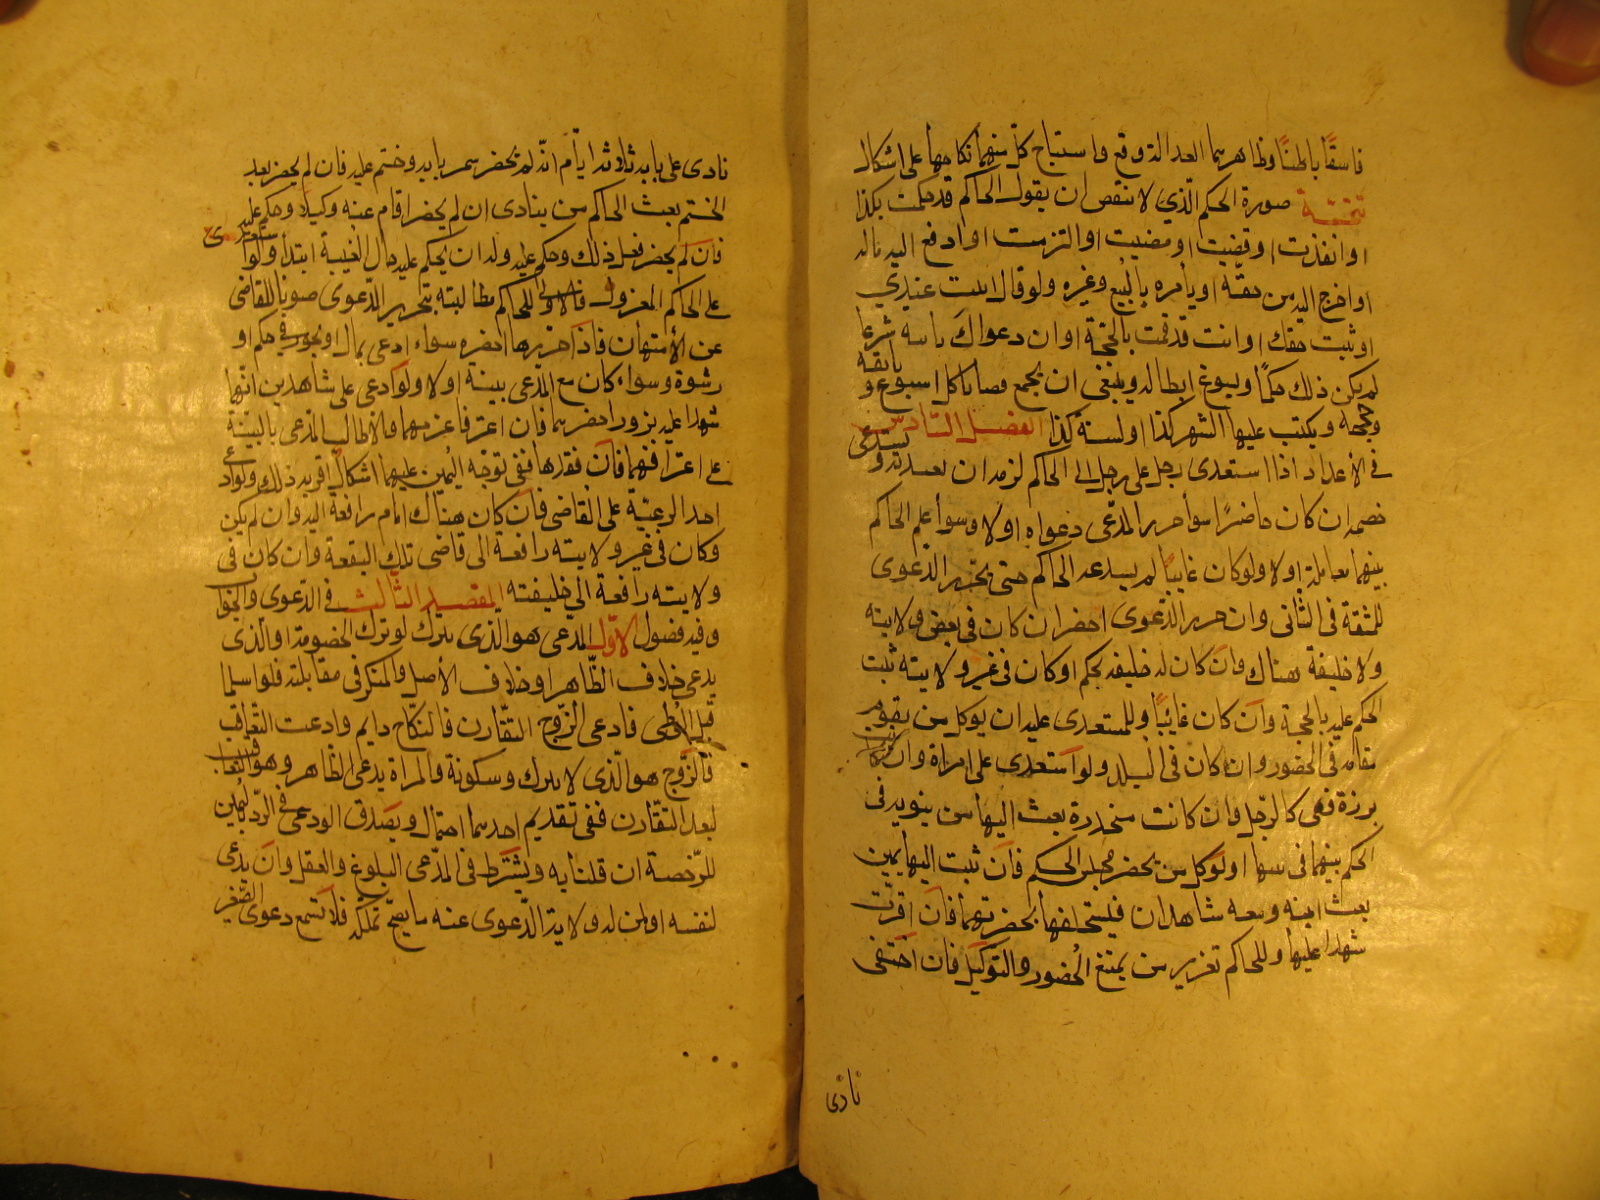 فاسقاً باطناً وظاهرهما العدالة وقع واستباح كلّ منهما نكاحها على اشكال
تتمّة صورة الحكم الّذي لا ينقض ان يقول الحاكم قد حكمت بكذا
او انفذت او قضيت او مضيت او الزمت او ادفع اليه ماله
او اخرج اليه من حقّه او يأمره بالبيع وغيره ولو قال ثبت عندي
او ثبت حقك او انت قد قمت بالحجّة او ان دعواك ثابتة شرعا
لم يكن ذلك حكماً ويسوغ ابطاله وينبغي ان يجمع قضايا كل اسبوع ووثائقه
وحججه ويكتب عليها الشهر كذا او لسنة كذا الفصل السّادس
في الاعداد اذا استعدى رجل على رجل الى الحاكم لزمه ان يعديه ويستدعى
خصمه ان كان حاضرًا سوأ حرر المدّعى دعواه او لا وسوأ علم الحاكم
بينهما معاملة او لا ولو كان غايبًا لم يستدعه الحاكم حتى يحرّر الدّعوى
للمشقة فى الثانى وان حرر الدّعوى احضر ان كان فى بعض ولايته
ولا خليفة هناك وان كان له خليفة يحكم او كان فى غير ولايته ثبت
الحكم عليه بالحجة وان كان غائبًا وللمستعدى عليه ان يوكل من يقوم
مقامه فى الحضور وان كان فى البلد ولو استعدى على امراة وان كانت
برزة فهى كالرّجل وان كانت مخدرة بعث اليها من ينوبه فى
الحكم بينهما فى بيتها او توكل من يحضر مجلس الحكم فان ثبت اليها يمين
بعث امينه ومعه شاهدان فيستحلفها بحضرتهما فان اقرّت
شهدا عليها وللحاكم تعزير من يمتنع الحضور والتّوكيل فان اختفى
نادى
نادى على بابه ثلاثة ايام انّه لم يحضر سمر بابه وختم عليه فان لم يحضر بعد
الختم بعث الحاكم من ينادى ان لم يحضر اقام عنه وكيلا وحكم عليه
فان لم يحضر فعل ذلك وحكم عليه وله ان يحكم عليه حال الغيبة ابتدأ ولو استعدى
على الحاكم المعزول فالاولى للحاكم مطالبته بتحرير الدّعوى صونا للقاضى
عن الأمتهان فاذا حررها احضره سواء ادعى بمال او بجور في حكم او
رشوة وسواء كان مع المدعى بينة او لا ولو ادعى على شاهدين انّهما
شهدا عليه بزور احضرهما فان اعترفا غرمهما والا طالب المدعى بالبيّنة
على اعترافهما فان فقدها ففى توجه اليمين عليهما اشكال اقربه ذلك ولو ادعى
احد الرعيّة على القاضى فان كان هناك امام رافعة اليه وان لم يكن
وكان فى غير ولايته رافعة الى قاضى تلك البقعة وان كان فى
ولايته رافعة الى خليفته المقصد الثّالث في الدّعوى والجواب
وفيه فصول الاوّل المدعى هو الذى يترك لو ترك الخصومة او الّذى
يدعى خلاف الظّاهر او خلاف الأصل والمنكر فى مقابلته فلو اسلما
قبل الوطى فادعى الزّوج التقّارن فالنكاح دايم وادعت التّعاقب
فالزّوج هو الّذى لا يترك وسكوته والمراة يدعى الظّاهر وهو التعاقب
لبعد التقارن ففى تقديم احدهما احتمال ويصدق الودعى فى الرّد بيمين
للرّخصة ان قلنا به ويشترط فى المدّعى البلوغ والعقل وان يدعى
لنفسه او لمن له ولاية الدّعوى عنه ما يصحّ تملّكه فلا تسمع دعوى الصّغير